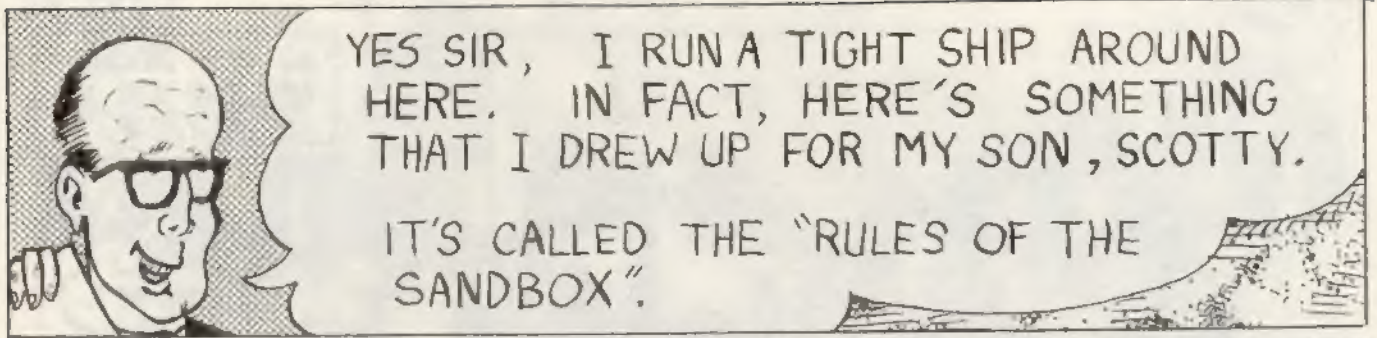 YES SIR, I RUN A TIGHT SHIP AROUND
HERE. IN FACT, HERE'S SOMETHING
THAT I DREW UP FOR MY SON, SCOTTY.
IT'S CALLED THE "RULES OF THE
SANDBOX".